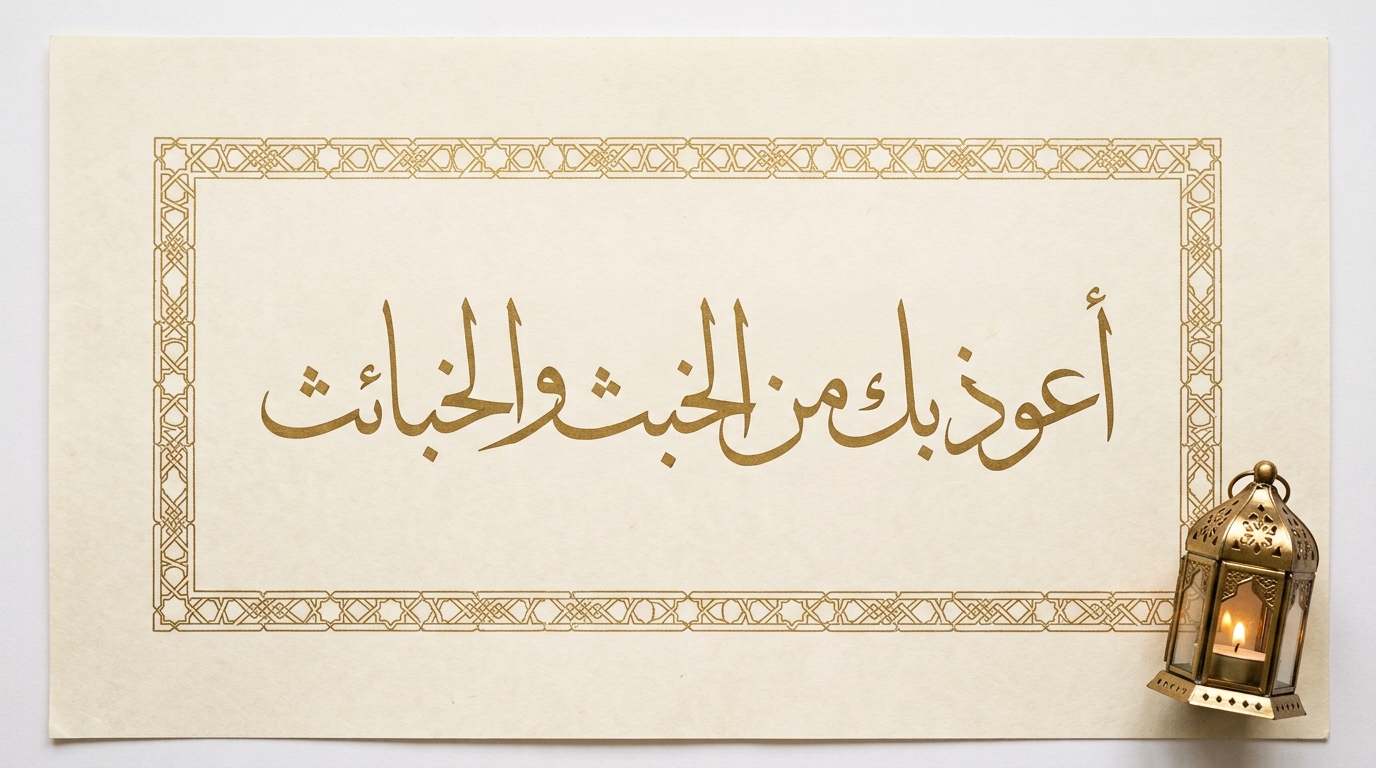 أعوذ بك من الخبث والخبائث